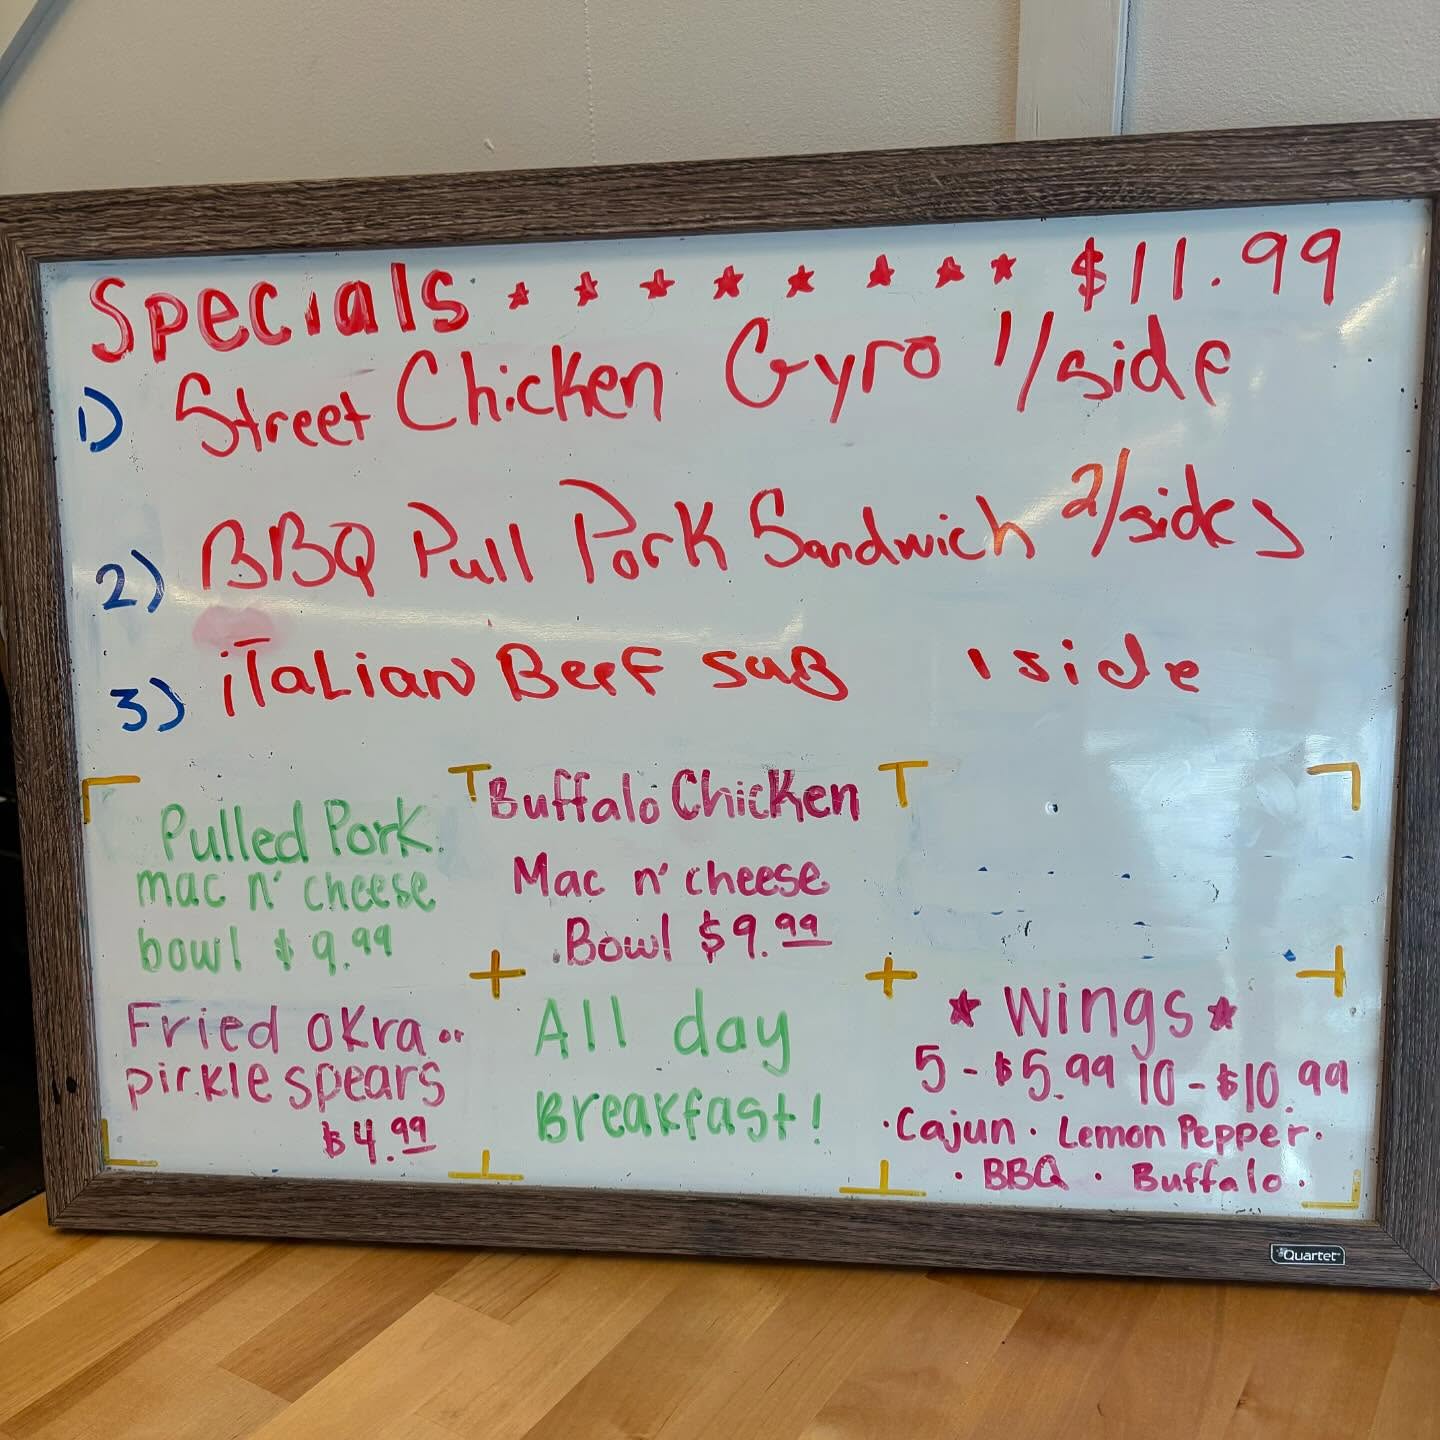 Specials $11.99
1) Street Chicken Gyro 1/side
2) BBQ Pull Pork Sandwich 2/sides
3) iTaLian Beef SuB 1 side
Pulled Pork
mac n' cheese
bowl $9.99
Buffalo Chicken
Mac n' cheese
Bowl $9.99
Fried okra or
pickle spears
$4.99
All day
Breakfast!
Wings
5 - $5.99 10 - $10.99
· Cajun · Lemon Pepper ·
· BBQ · Buffalo ·
Quartet